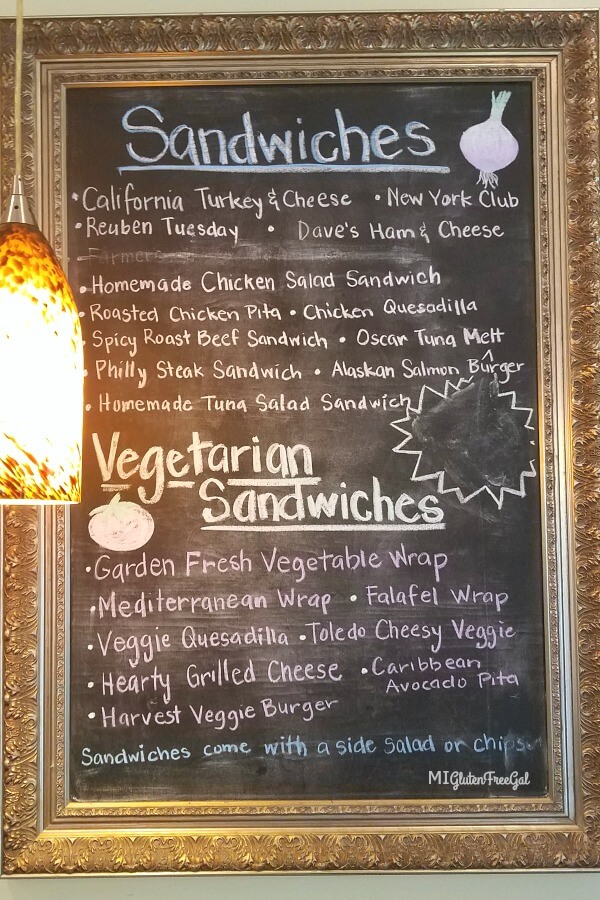 Sandwiches
• California Turkey & Cheese • New York Club
• Reuben Tuesday • Dave's Ham & Cheese
Farmers
• Homemade Chicken Salad Sandwich
• Roasted Chicken Pita • Chicken Quesadilla
• Spicy Roast Beef Sandwich • Oscar Tuna Melt
• Philly Steak Sandwich • Alaskan Salmon Burger
• Homemade Tuna Salad Sandwich
Vegetarian
Sandwiches
• Garden Fresh Vegetable Wrap
• Mediterranean Wrap • Falafel Wrap
• Veggie Quesadilla • Toledo Cheesy Veggie
• Hearty Grilled Cheese • Caribbean
Avocado Pita
• Harvest Veggie Burger
Sandwiches come with a side salad or chips.
MIGlutenFreeGal